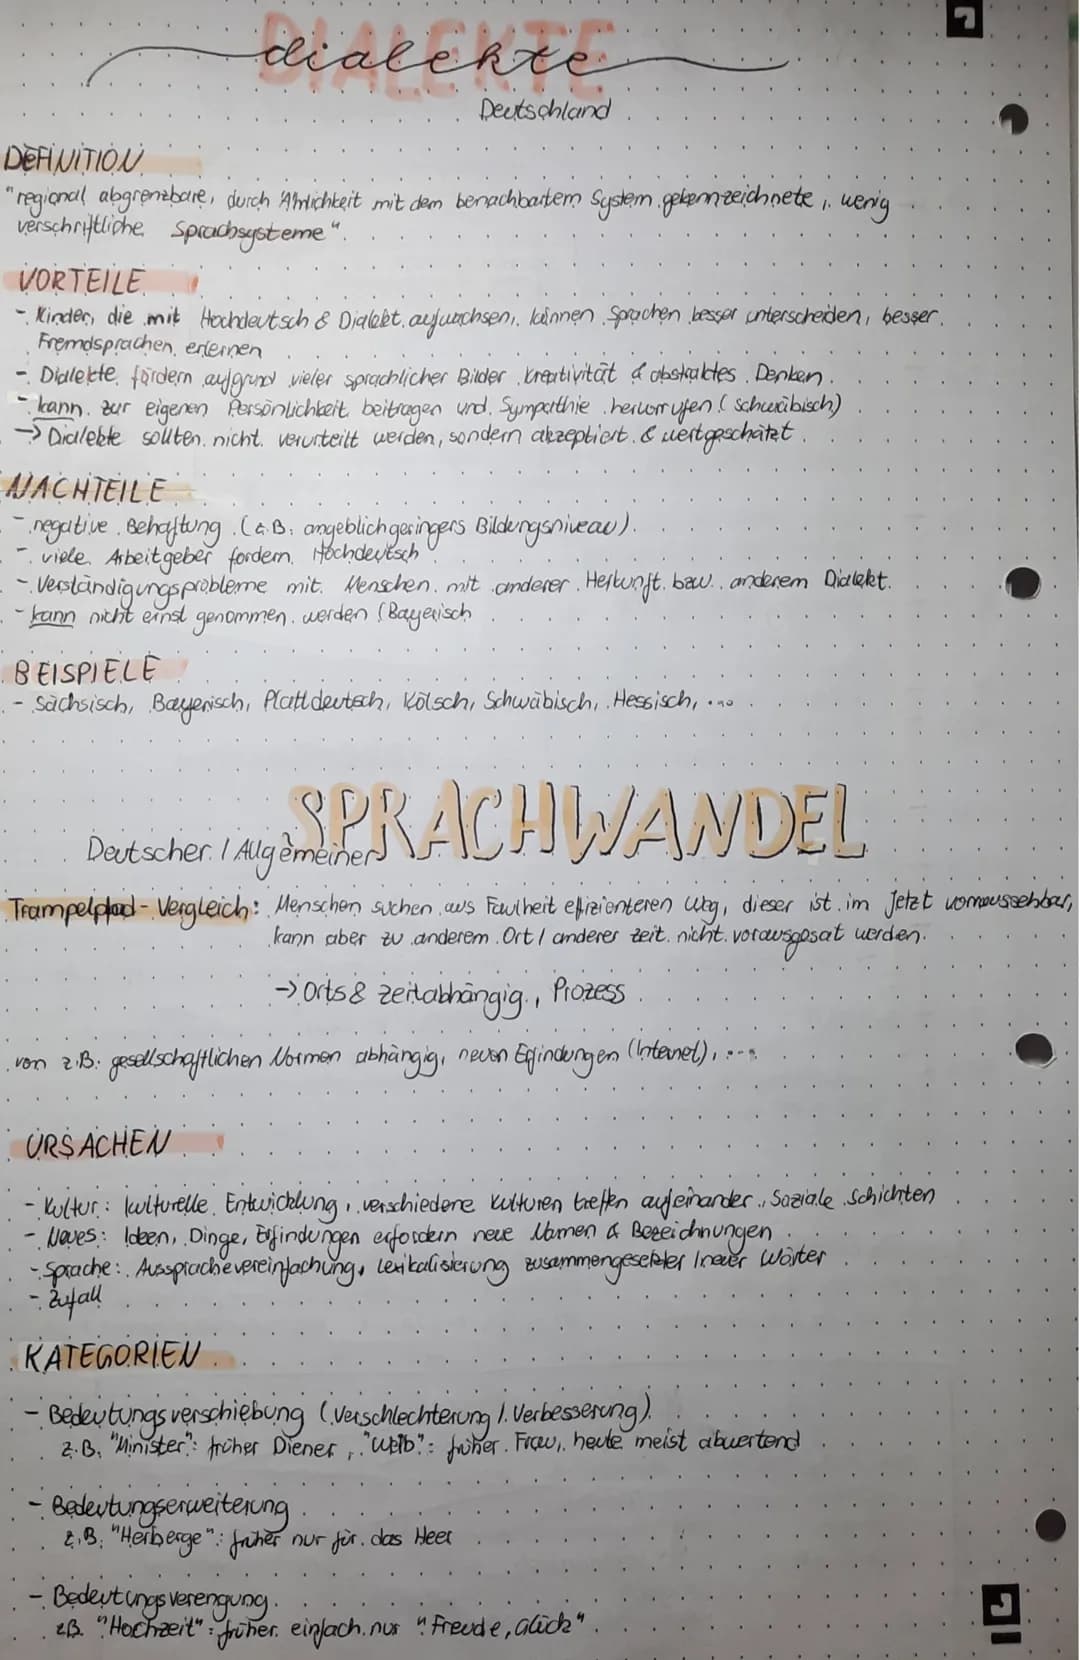 DIALEKTE
dialekte
Deutschland
DEFINITION
"regional abgrenzbare, durch Ähnlichkeit mit dem benachbartem System gekennzeichnete, wenig
verschriftliche Sprachsysteme".
VORTEILE
- Kinder, die mit Hochdeutsch & Dialekt aufwachsen, können Sprachen besser unterscheiden, besser
Fremdsprachen erlernen
- Dialekte fördern aufgrund vieler sprachlicher Bilder Kreativität & abstraktes Denken
- kann zur eigenen Persönlichkeit beitragen und Sympathie hervorrufen (Schwäbisch)
-> Dialekte sollten nicht verurteilt werden, sondern akzeptiert & wertgeschätzt
NACHTEILE
- negative Behaftung (z.B. angeblich geringers Bildungsniveau)
- viele Arbeitgeber fordern Hochdeutsch
- Verständigungsprobleme mit Menschen mit anderer Herkunft bzw. anderem Dialekt.
- kann nicht ernst genommen werden (Bayerisch
BEISPIELE
- Sächsisch, Bayerisch, Plattdeutsch, Kölsch, Schwäbisch, Hessisch, ...
SPRACHWANDEL
Deutscher / Allgemeiner
Trampelpfad-Vergleich: Menschen suchen aus Faulheit effizienteren Weg, dieser ist im Jetzt vorraussehbar,
kann aber zu anderem Ort / anderer Zeit nicht vorausgesat werden.
-> Orts & zeitabhängig, Prozess
von z.B. gesellschaftlichen Normen abhängig, neuen Erfindungen (Internet), ...
URSACHEN
- Kultur: kulturelle Entwicklung, verschiedene Kulturen treffen aufeinander, Soziale Schichten
- Neues: Ideen, Dinge, Erfindungen erfordern neue Namen & Bezeichnungen
- Sprache: Aussprachevereinfachung, Lexikalisierung zusammengesetzter / neuer Wörter
- Zufall
KATEGORIEN
- Bedeutungsverschiebung (Verschlechterung / Verbesserung)
z.B. "Minister": früher Diener, "Weib": früher Frau, heute meist abwertend
- Bedeutungserweiterung
z.B. "Herberge": früher nur für das Heer
- Bedeutungsverengung
z.B. "Hochzeit": früher einfach nur "Freude, Glück"